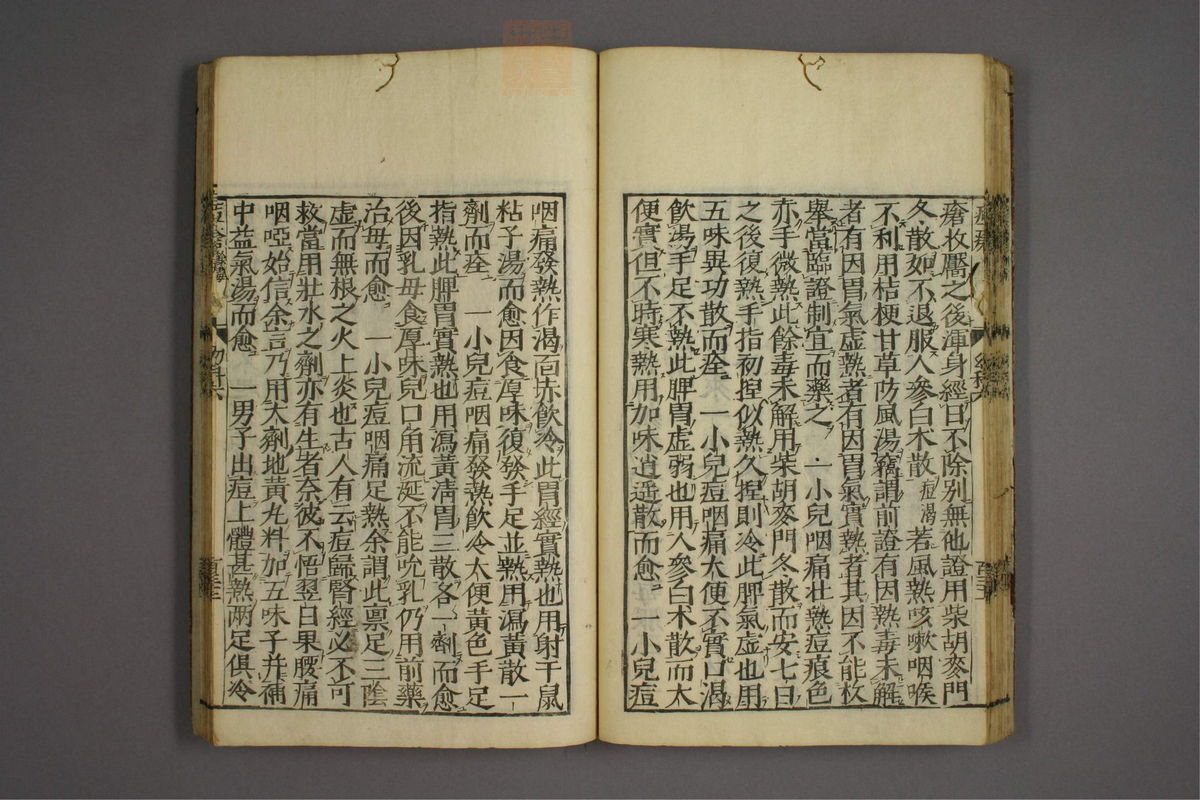 瘡枚靨之後渾身經日不除別無他證用柴胡麥門
冬散如不退服人參白朮散痘渴若風熱咳嗽咽喉
不利用桔梗甘草防風湯竊謂前證有因熱毒未解
者有因胃氣虛熱者有因胃氣實熱者其因不能枚
舉當臨證制宜而藥之 一小兒咽痛壯熱痘痕色
赤手微熱此餘毒未解用柴胡麥門冬散而安七日
之後復熱手指初捏似熱久捏則冷此脾氣虛也用
五味異功散而痊 一小兒痘咽痛大便不實口渴
飲湯手足不熱此脾胃虛弱也用人參白朮散而大
便實但不時寒熱用加味逍遥散而愈 一小兒痘
咽痛發熱作渴面赤飲冷此胃經實熱也用射干鼠
粘子湯而愈因食厚味復發手足並熱用瀉黃散一
劑而痊 一小兒痘咽痛發熱飲冷大便黃色手足
指熱此脾胃實熱也用瀉黃清胃二散各一劑而愈
後因乳母食厚味兒口角流涎不能吮乳仍用前藥
治母而愈 一小兒痘咽痛足熱余謂此禀足三陰
虛而無根之火上炎也古人有云痘歸腎經必不可
救當用壯水之劑亦有生者奈彼不悟翌日果腰痛
咽啞始信余言乃用大劑地黃丸料加五味子并補
中益氣湯而愈 一男子出痘上體甚熱兩足俱冷